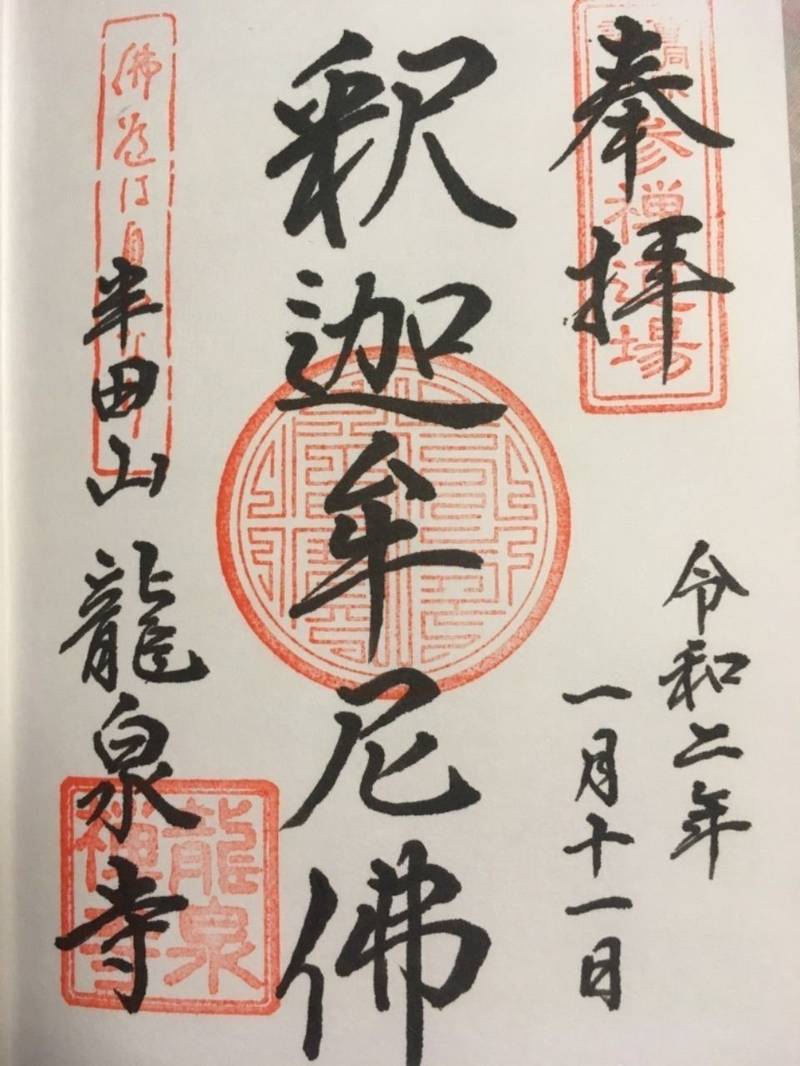 奉拝
曹洞宗 参禅道場
令和二年
一月十一日
釈迦牟尼佛
佛道は自
半田山 龍泉寺
龍泉禅寺